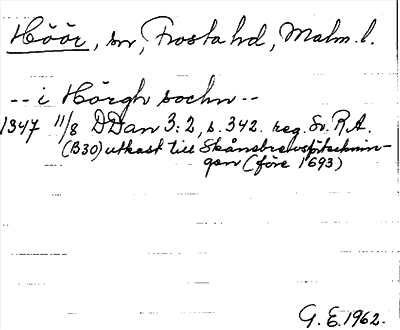 Höör, sn, Frosta hd, Malm. l.
-- i Hörgh sochn --
1347 11/8 DDan 3:2, s. 342. reg. Sv. R.A.
(B30) utkast till Skånebrevsförtecknin-
gen (före 1693)
G. E. 1962.